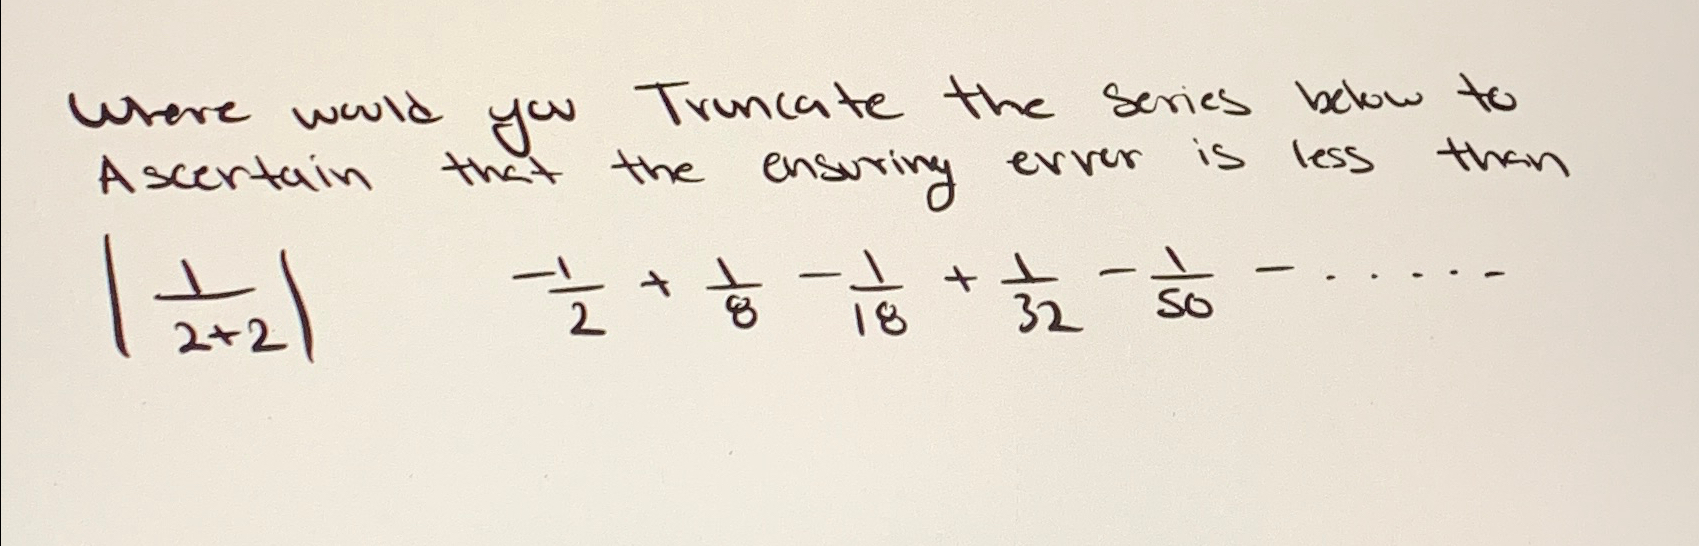 Where would you Truncate the series below to
Ascertain that the ensuring error is less than
|1/(2+2)| -1/2 + 1/8 - 1/18 + 1/32 - 1/50 - .....-